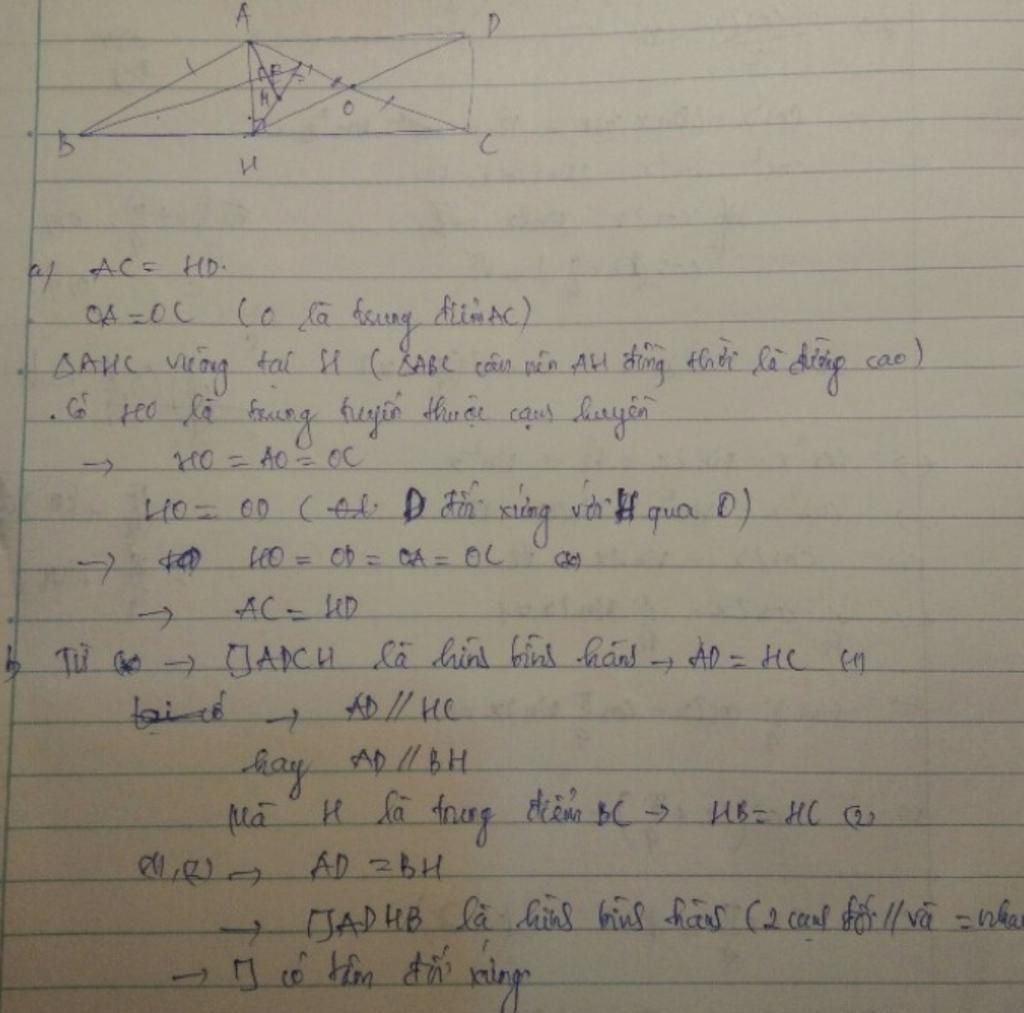 A
D
E
M
O
B
H
C
a) AC = HD.
OA = OC (O là trung điểm AC)
ΔAHC vuông tại H (ΔABC cân nên AH đồng thời là đường cao)
. Có HO là trung tuyến thuộc cạnh huyền
→ HO = AO = OC
HO = OD ( D đối xứng với H qua O)
→ HO = OD = OA = OC (*)
→ AC = HD
b) Từ (*) → ▯ADCH là hình bình hành → AD = HC (1)
→ AD // HC
hay AD // BH
Mà H là trung điểm BC → HB = HC (2)
(1), (2) → AD = BH
→ ▯ADHB là hình bình hành (2 cạnh đối // và = nhau
→ ▯ có tâm đối xứng